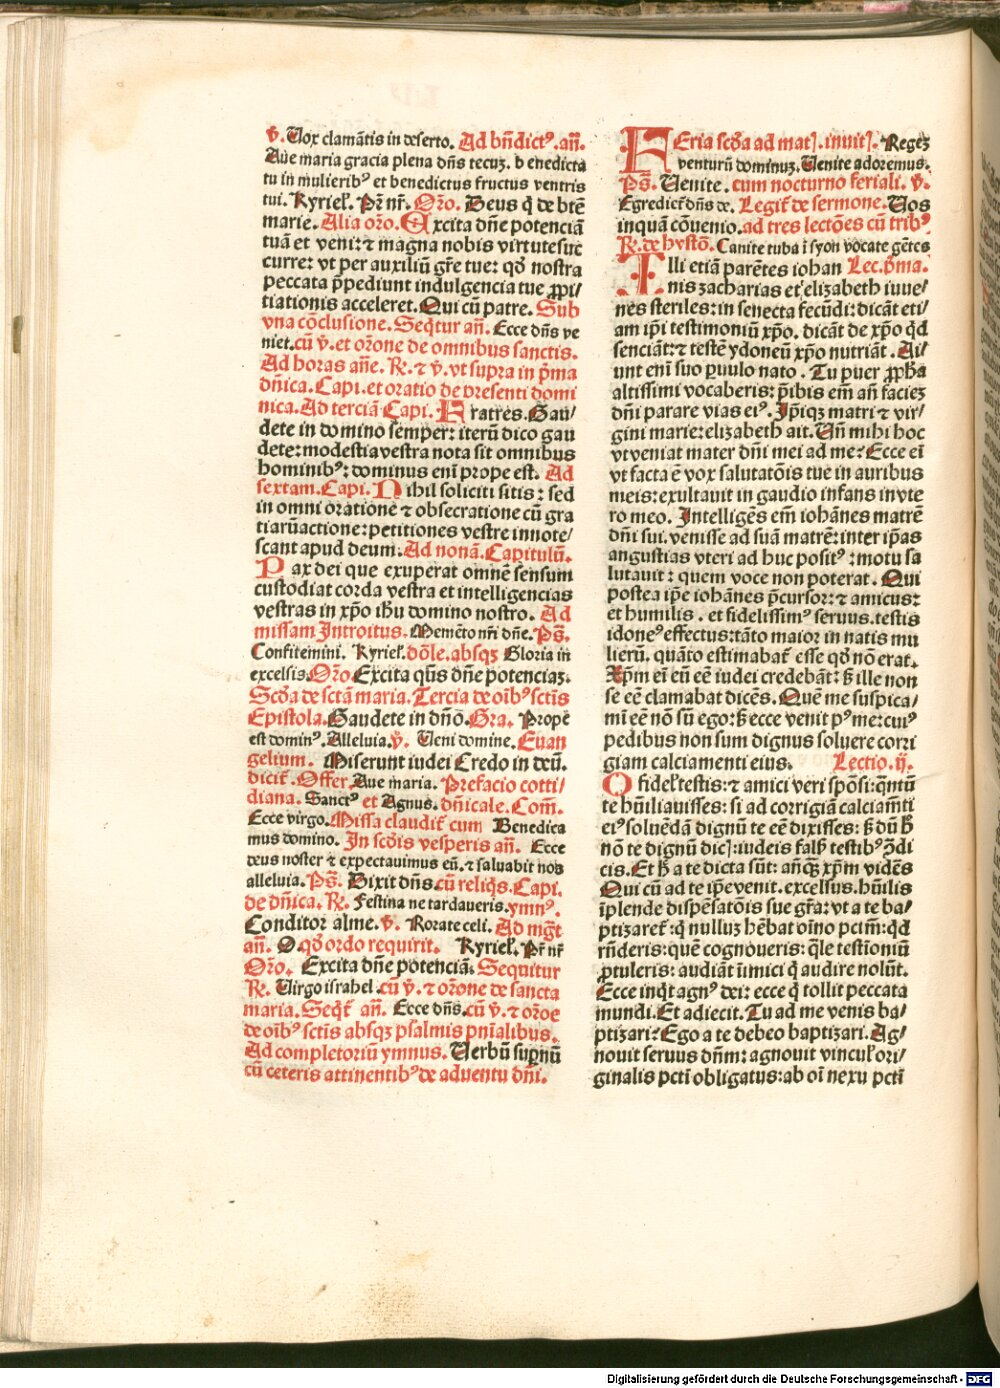 v̄. Uox clamãtis in deserto. Ad bñdictꝰ. añ.
Aue maria gracia plena dñs tecuꝫ. b enedicta
tu in mulieribꝰ et benedictus fructus ventris
tui. Kyriel̃. Pr̃ nr̃. Oro. Deus q̃ de btẽ
marie. Alia oro. Excita dñe potenciã
tuã et veni: ⁊ magna nobis virtute suc
curre: vt per auxiliũ gr̃e tue: qđ nostra
peccata p̃pediunt indulgencia tue ꝓpi/
tiationis acceleret. Qui cũ patre. Sub
vna cõclusione. Seq̃tur añ. Ecce dñs ve
niet. cũ v̄. et orõne de omnibus sanctis.
Ad horas añe. R. ⁊ v̄. vt supra in p̃ma
dñica. Capi. et oratio de presenti domi
nica. Ad terciã Capi. Fratres. Gau/
dete in domino semper: iterũ dico gau
dete: modestia vestra nota sit omnibus
hominibꝰ: dominus enĩ prope est. Ad
sextam. Capi. Nihil soliciti sitis: sed
in omni oratione ⁊ obsecratione cũ gra
tiarũ actione: petitiones vestre innote/
scant apud deum. Ad nonã. Capitulũ.
Pax dei que exuperat omnẽ sensum
custodiat corda vestra et intelligencias
vestras in xp̃o ihũ domino nostro. Ad
missam Introitus. Memẽto nr̃i dñe. Ps̃.
Confitemini. Kyriel̃. dõle. absqꝫ Gloria in
excelsis. Oro Excita q̃s dñe potenciaꝫ.
Scđa de sctã maria. Tercia de oĩbꝰ sctĩs
Epistola. Gaudete in dñõ. Gra. Propẽ
est dominꝰ. Alleluia. v̄. Ueni domine. Euan
gelium. Miserunt iudei Credo in deũ.
dicit̃. Offer. Aue maria. Prefacio cotti/
diana. Sanctꝰ et Agnus. dñicale. Com̃.
Ecce virgo. Missa claudit̃ cum Benedica
mus domino. In scđis vesperis añ. Ecce
deus noster ⁊ expectauimus eũ. ⁊ saluabit nos
alleluia. Ps̃. Dixit dñs cũ reliq̃s. Capi.
de dñica. R. Festina ne tardaueris. ymnꝰ.
Conditor alme. v̄. Rorate celi. Ad mg̃t
añ. O. qđ ordo requirit. Kyriel̃. Pr̃ nr̃
Oro. Excita dñe potenciã. Sequitur
R. Uirgo israhel. cũ v̄. ⁊ orõne de sancta
maria. Seqt̃ añ. Ecce dñs. cũ v̄. ⁊ oroẽ
de oĩbꝰ sctĩs absqꝫ psalmis pñialibus.
Ad completoriũ ymnus. Uerbũ sup̃nũ
cũ ceteris attinentibꝰ de aduentu dñi.
Feria scđa ad mat̃. inuit̃. Regeꝫ
venturũ dominuꝫ. Uenite adoremus.
Ps̃. Uenite. cum nocturno feriali. v̄.
Egrediet̃ dñs de. Legit̃ de sermone. Uos
inquã cõuenio. ad tres lectões cũ tribꝰ
R. de hystõ. Canite tuba ĩ syon vocate gẽtes
Illi etiã parẽtes iohan Lec. p̃ma.
nis zacharias et elizabeth iuue/
nes steriles: in senecta fecũdi: dicãt eti/
am ip̃i testimoniũ xp̃o. dicãt de xp̃o qđ
senciãt: ⁊ testẽ ydoneũ xp̃o nutriãt. Ai/
unt enĩ suo puulo nato. Tu puer ꝓpħa
altissimi vocaberis: p̃ibis em̃ añ facieꝫ
dñi parare vias eiꝰ. Ip̃iqꝫ matri ⁊ vir/
gini marie: elizabeth ait. Uñ mihi hoc
vt veniat mater dñi mei ad me? Ecce eĩ
vt facta ẽ vox salutatõis tue in auribus
meis: exultauit in gaudio infans in vte
ro meo. Intelligẽs em̃ iohãnes matrẽ
dñi sui. venisse ad suã matrẽ: inter ip̃as
angustias vteri ad huc positꝰ: motu sa
lutauit: quem voce non poterat. Qui
postea ip̃e iohãnes p̃cursor: ⁊ amicus:
et humilis. et fidelissimꝰ seruus. testis
idoneꝰ effectus: tãto maior in natis mu
lierũ. quãto estimabat̃ esse qđ nõ erat.
Xp̃m eĩ eũ eẽ iudei credebãt: ß ille non
se eẽ clamabat dicẽs. Quẽ me suspica/
mĩ eẽ nõ sũ ego: ß ecce venit pꝰ me: cuiꝰ
pedibus non sum dignus soluere corri
giam calciamenti eius. Lectio. ij.
O fidel̃ testis: ⁊ amici veri spõsi: q̃ntũ
te hũiliauisses: si ad corrigiã calciam̃ti
eiꝰ soluẽdã dignũ te eẽ dixisses: ß dũ ħ
nõ te dignũ dic̃: iudeis fals̃ testibꝰ ↄ̃di
cis. Et ħ a te dicta sũt: añqꝫ xp̃m vidẽs
Qui cũ ad te ip̃e venit. excelsus. hũilis
ĩplende dispẽsatõis sue gr̃a: vt a te ba/
ptizaret̃: q̃ nulluꝫ hẽbat oĩno pctm̃: qđ
rñderis: quẽ cognoueris: q̃le testĩoniũ
ꝓtuleris: audiãt ĩimici q̃ audire nolũt.
Ecce inq̃t agnꝰ dei: ecce q̃ tollit peccata
mundi. Et adiecit. Tu ad me venis ba/
ptizari? Ego a te debeo baptizari. Ag/
nouit seruus dñm: agnouit vincul̃ ori/
ginalis pcti obligatus: ab oĩ nexu pcti
Digitalisierung gefördert durch die Deutsche Forschungsgemeinschaft - DFG